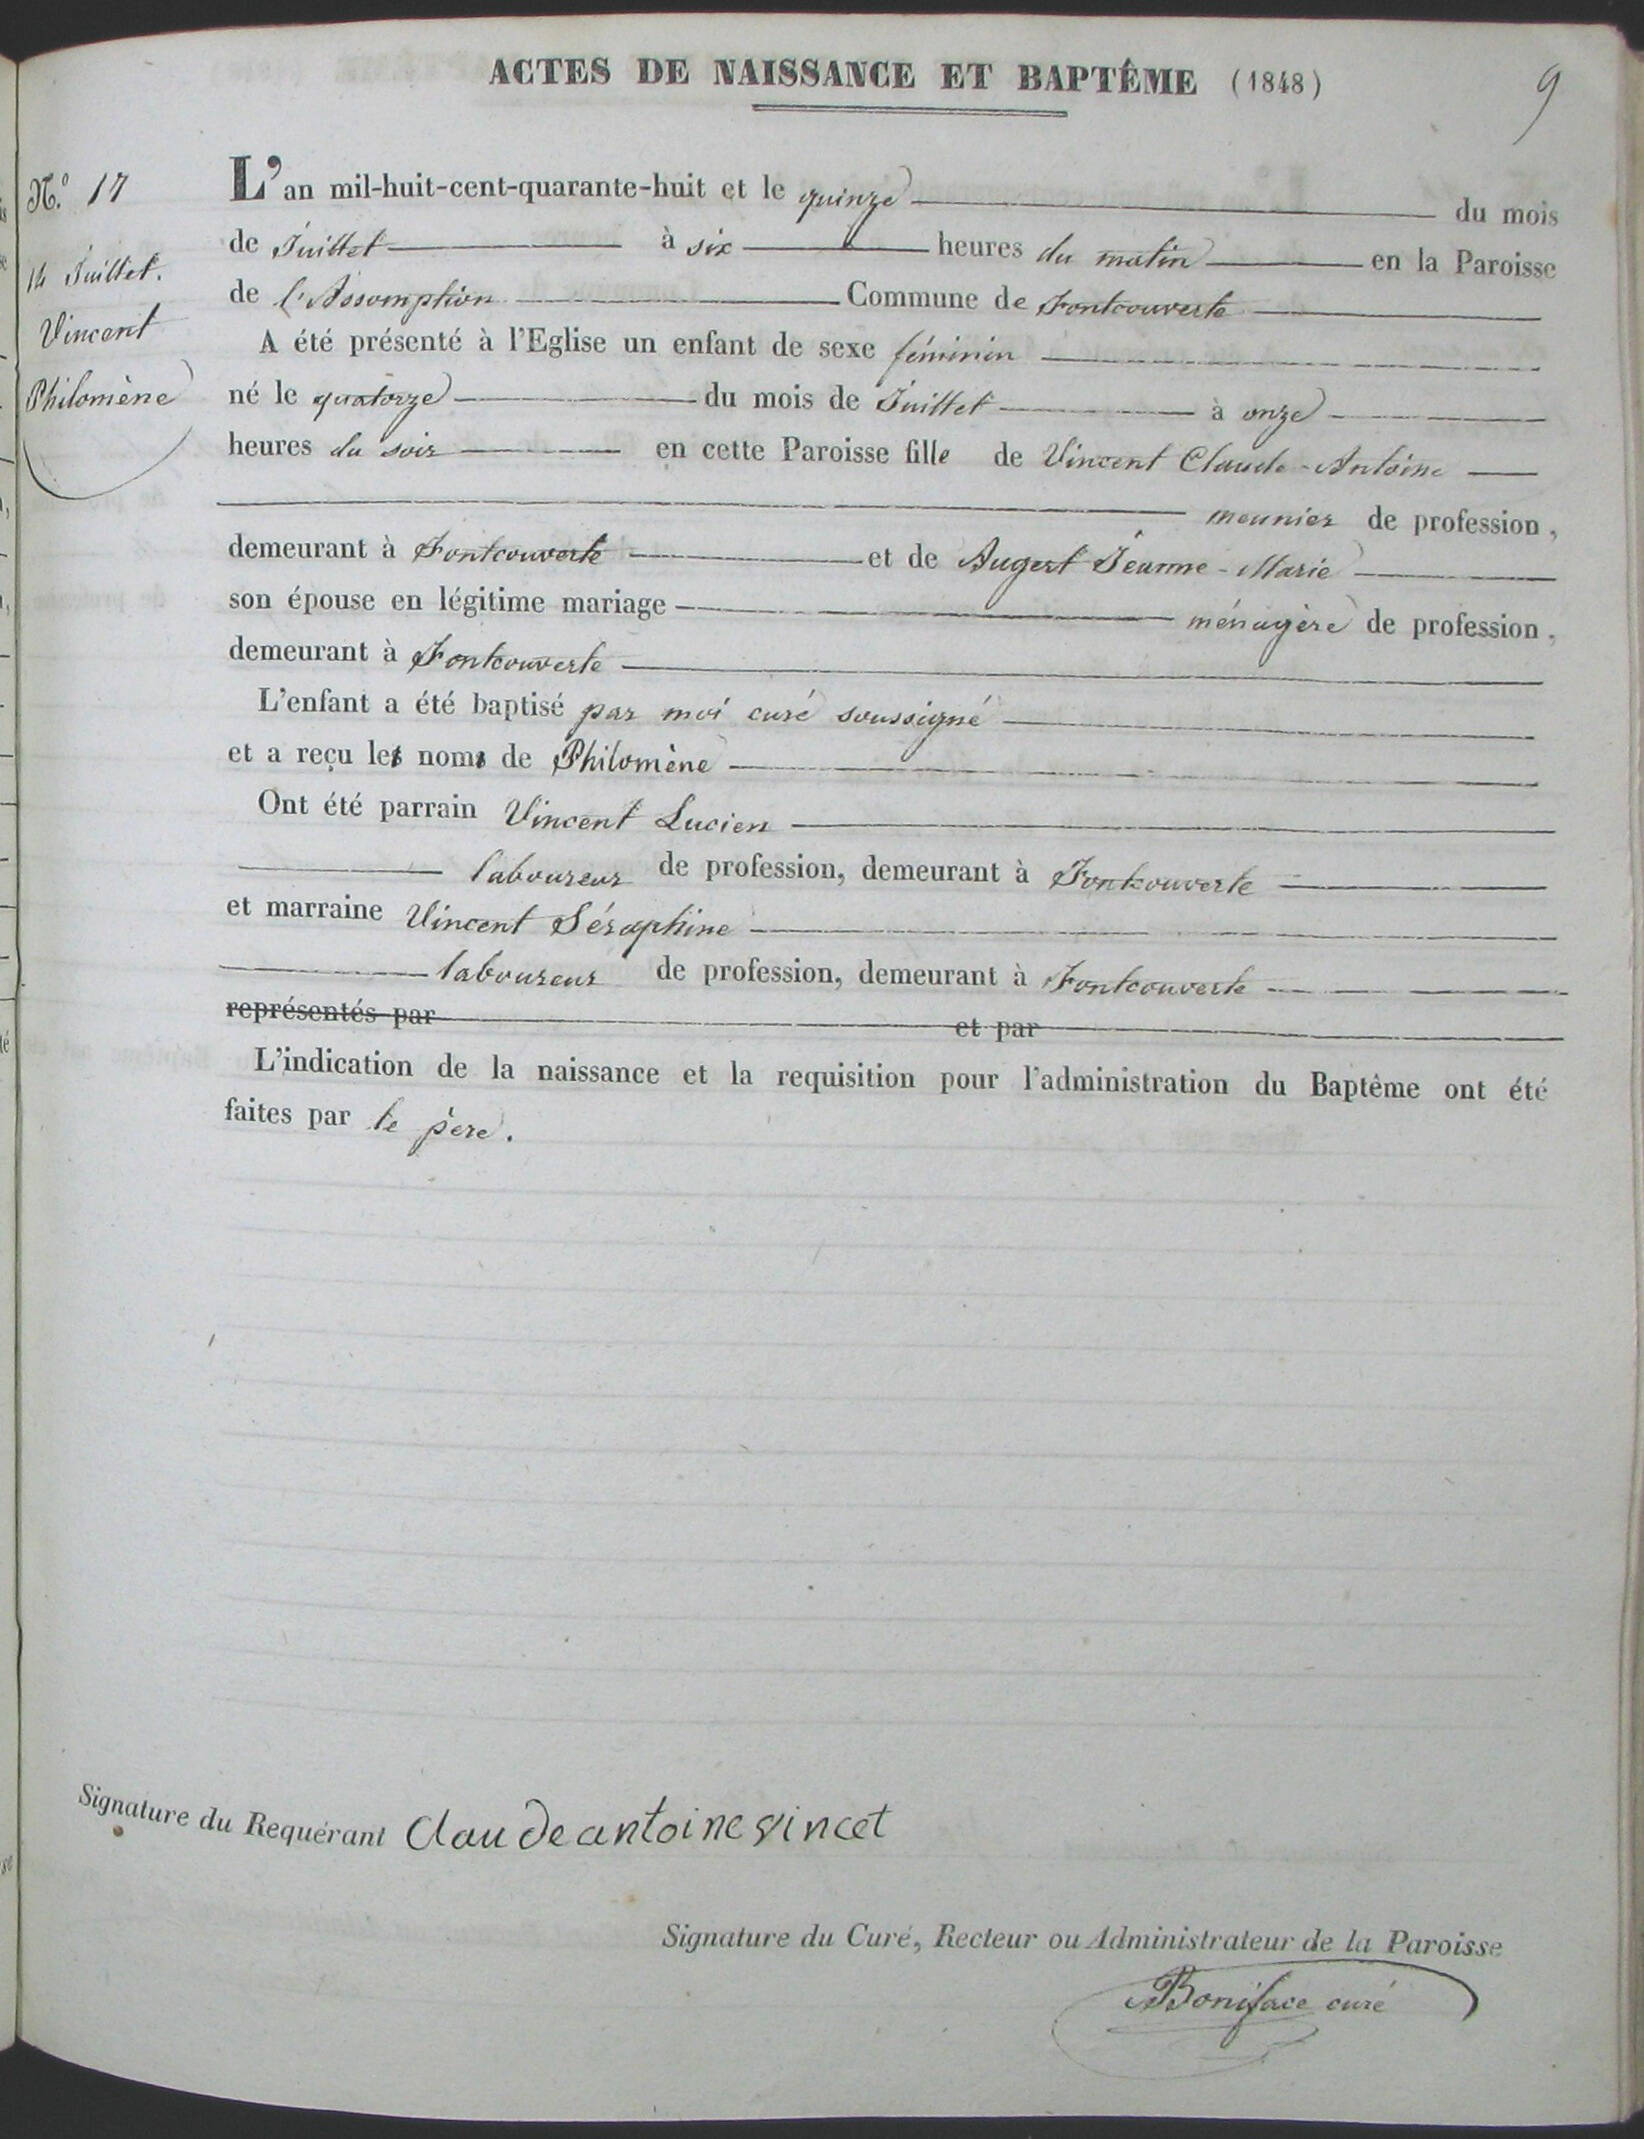 ACTES DE NAISSANCE ET BAPTÊME (1848)
9
N.º 17
14 Juillet.
Vincent
Philomène
L'an mil-huit-cent-quarante-huit et le quinze du mois
de Juillet à six heures du matin en la Paroisse
de l'Assomption Commune de Fontcouverte
A été présenté à l'Eglise un enfant de sexe féminin
né le quatorze du mois de Juillet à onze
heures du soir en cette Paroisse fille de Vincent Claude-Antoine
meunier de profession,
demeurant à Fontcouverte et de Augert Jeanne-Marie
son épouse en légitime mariage ménagère de profession,
demeurant à Fontcouverte
L'enfant a été baptisé par moi curé soussigné
et a reçu les noms de Philomène
Ont été parrain Vincent Lucien
laboureur de profession, demeurant à Fontcouverte
et marraine Vincent Séraphine
laboureur de profession, demeurant à Fontcouverte
représentés par et par
L'indication de la naissance et la requisition pour l'administration du Baptême ont été
faites par le père.
Signature du Requérant Claudeantoine vincet
Signature du Curé, Recteur ou Administrateur de la Paroisse
Boniface curé